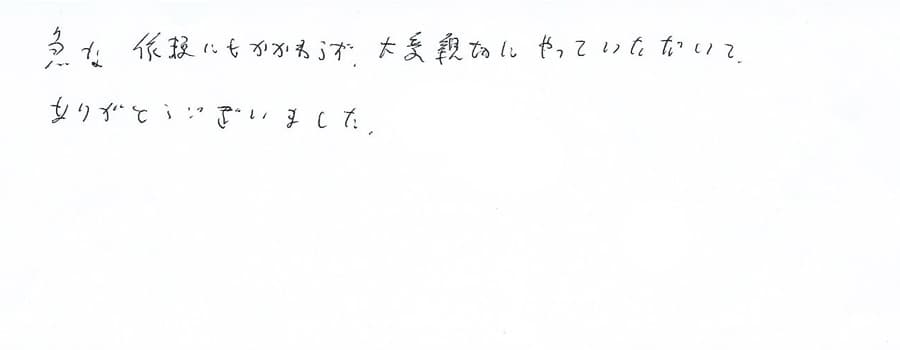 急な依頼にもかかわらず、大変親切にやっていただいて、
ありがとうございました。